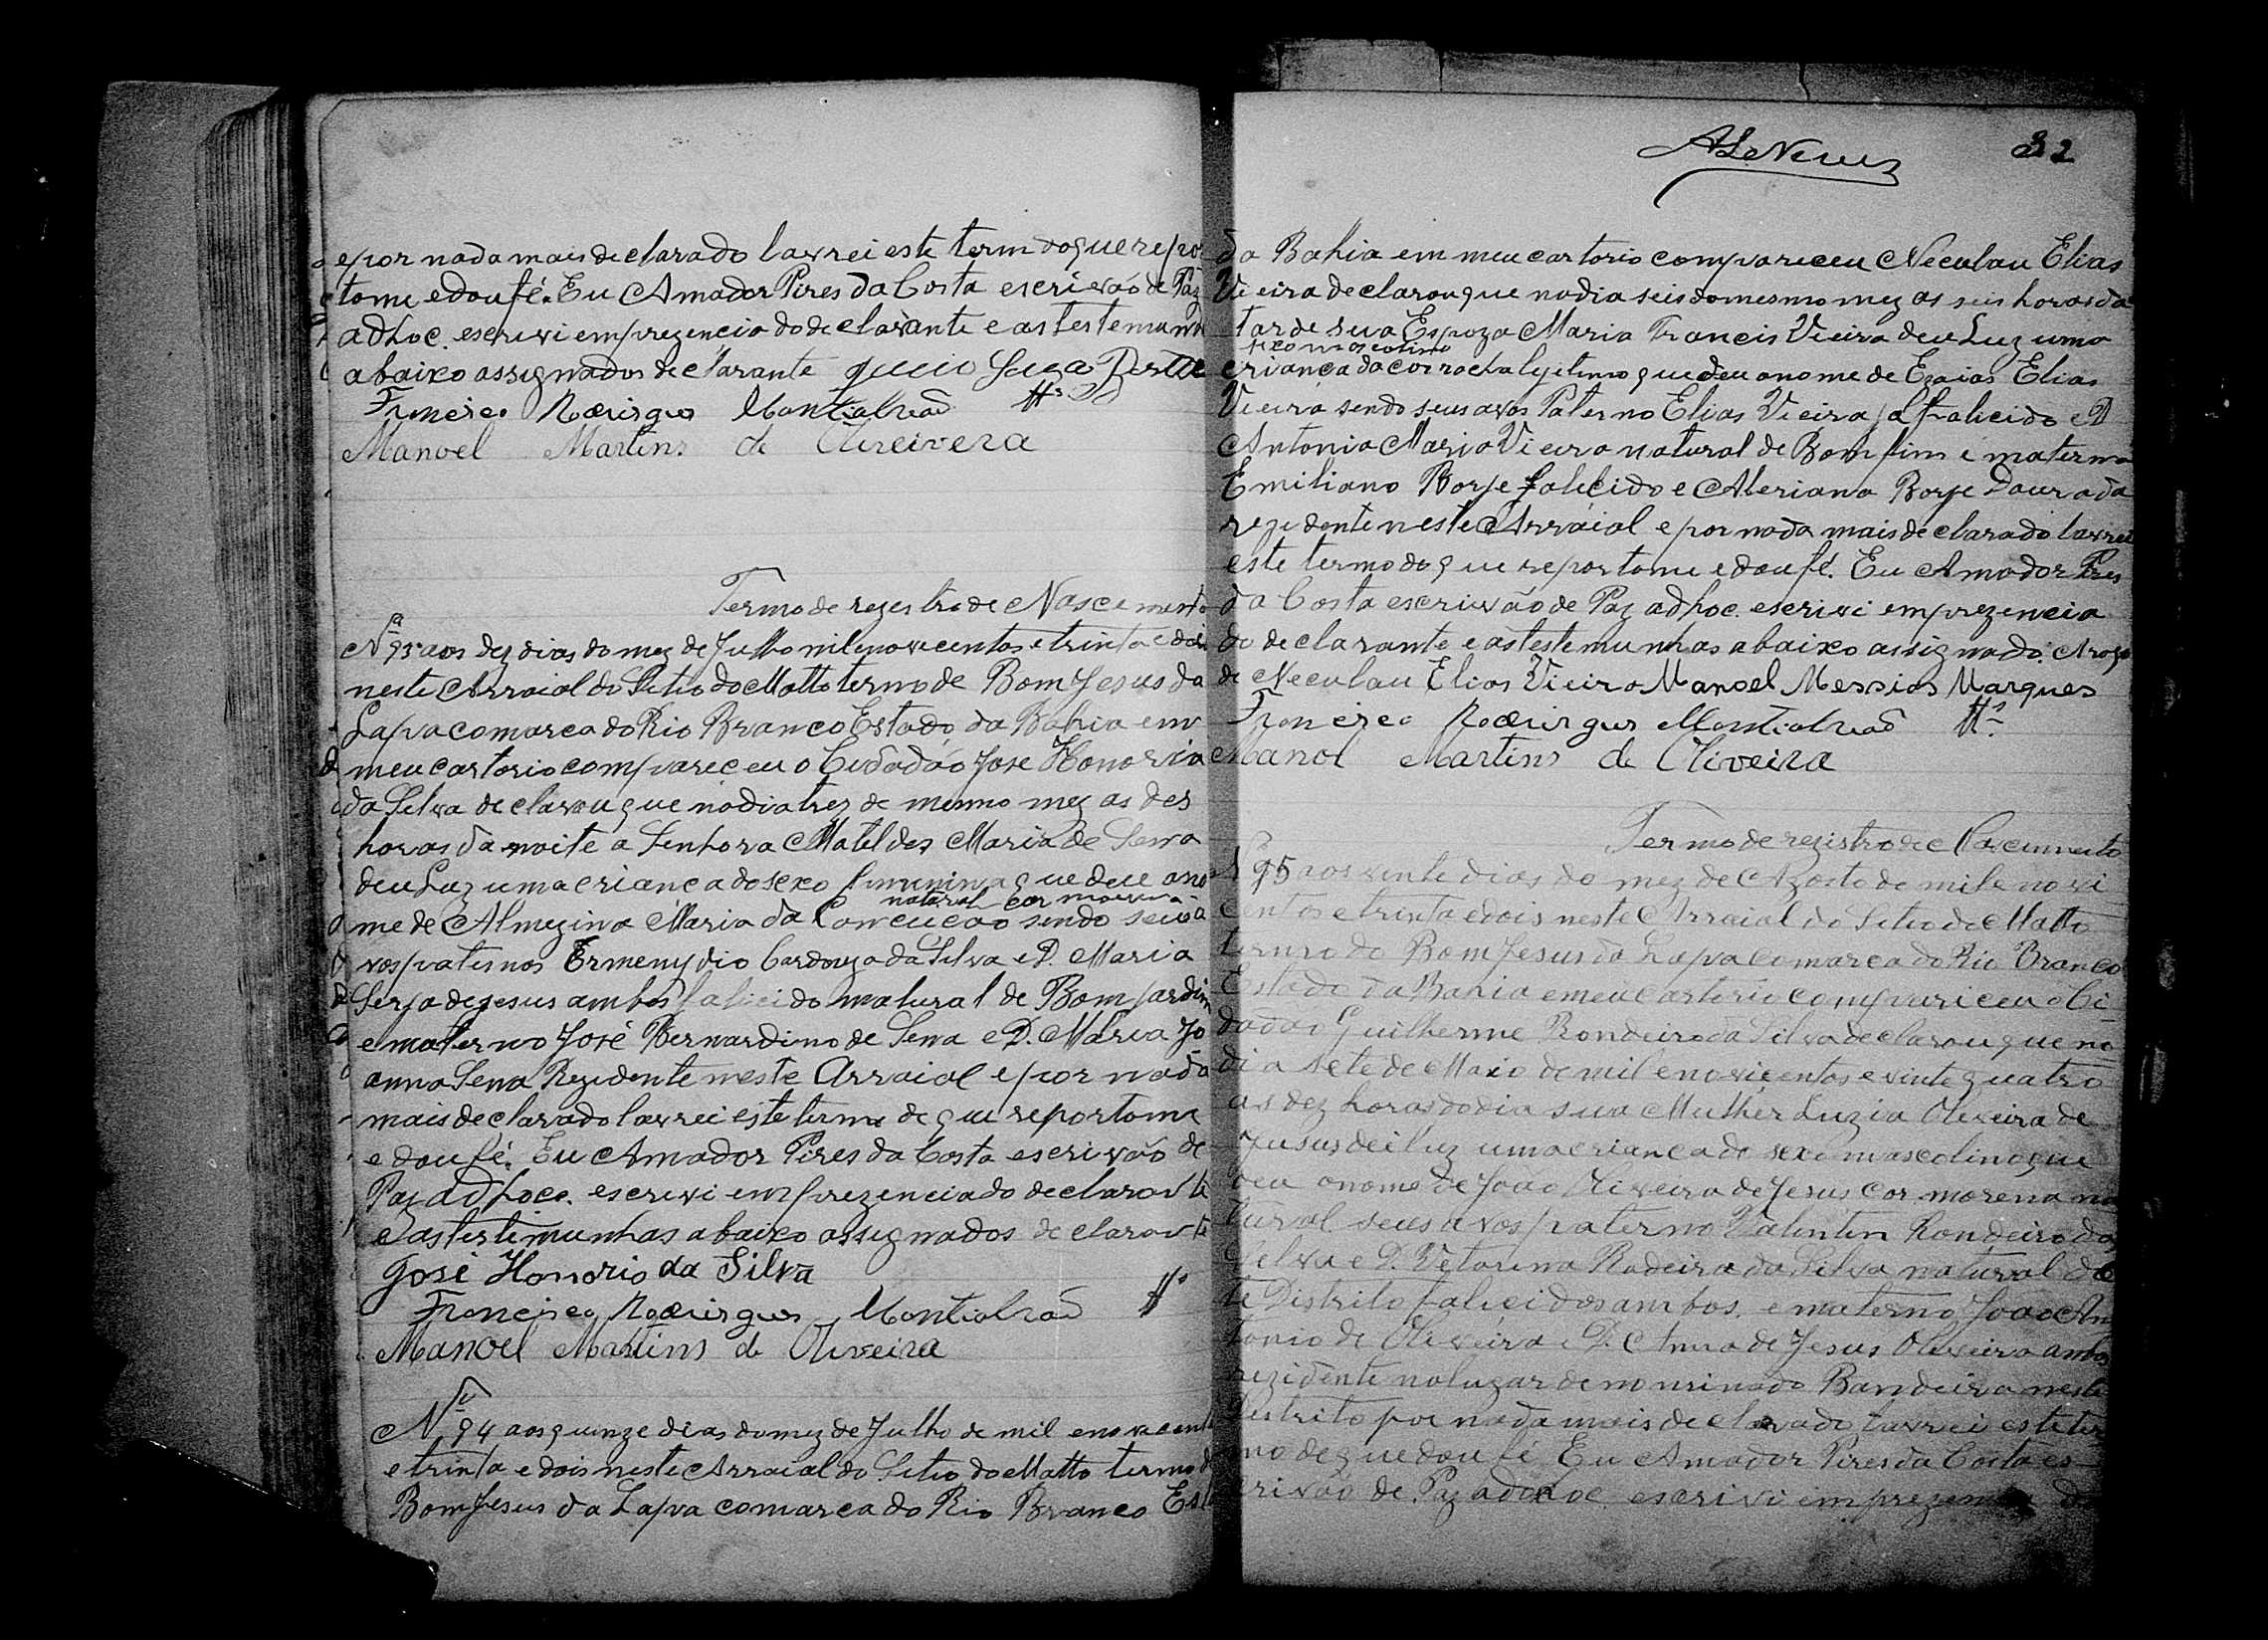 e por nada mais declarado lavrei este term do que repor
tome e dou fé. Eu Amador Pires da Costa escrivão de Paz
adhoc. escrivi em prezencia do declarante e as testemunh
abaixo assignados declarante
Francisco Rodrigues Montialvão Hs
Manoel Martins de Olireivera
Termo de regestro de Nascemento
Nº 93 aos dez dias do mez de Julho mil enovecentos e trinta e dois
neste Arraial do Sitio do Matto termo de Bom Jesus da
Lapa comarca do Rio Branco Estado da Bahia em
meu cartorio compareceu o Cidadão José Honorio
da Silva declarou que no dia trez de mesmo mez as des
horas da noite a Senhora Matildes Maria de Sena
deu Luz uma crianca do sexo feminina que deu ano
natural cor morena
me de Almezina Maria da Conceucao sendo seus a
vos paternos Ermenydio Cardouzo da Silva e D. Maria
Serfa de Jesus ambos falicido natural de Bom Jardim
e materno José Bernardino de Sena e D. Maria Jo
anna Sena Rezidente neste Arraial e por nada
mais declarado lavrei este termo de que reportome
e dou fé. Eu Amador Pires da Costa escrivão de
Paz adhoc. escrivi em prezencia do declarante
e as testimunhas abaixo assignados declarante
José Honorio da Silva
Francisco Rodrigues Montialvão Hs
Manoel Martins de Oliveira
Nº 94 aos quinze dias do mez de Julho de mil enovecent
e trinta e dois neste Arraial do Sitio do Matto termo d
Bom Jesus da Lapa comarca do Rio Branco Est
32
da Bahia em meu cartorio compareceu Neculau Elias
Vieira declarou que no dia seis do mesmo mez as seis horas da
tarde sua Espoza Maria Francis Vieira deu Luz uma
sexo mascolino
criança da cor rocha legitimo que deu o nome de Ezaias Elias
Vieira sendo seus avos Paterno Elias Vieira já falicido e D
Antonia Maria Vieira natural de Bomfim e materno
Emiliano Borje falicido e Aleriana Borje Dourada
rezidente neste Arráial e por nada mais declarado lavrei
este termo do que reportome e dou fé. Eu Amador Pires
da Costa escrivão de Paz adhoc. escrivi em prezencia
do declarante e as testemunhas abaixo assignado. Arogo
de Neculau Elias Vieira Manoel Messias Marques
Francisco Rodrigues Montialvão Hs
Manoel Martins de Oliveira
Termo de registro de Nascimento
Nº 95 aos vinte dias do mez de Agosto de mil e novi
centos e trinta e dois neste Arraial do Sitio do Matto
termo do Bom Jesus da Lapa comarca do Rio Branco
Estado da Bahia e meu cartorio compariceu o Ci
dadão Guilherme Rondeiro da Silva declarou que no
dia sete de Maio de mil e novicentos e vinte quatro
as dez horas do dia sua Mulher Luzia Oliveira de
Jusus dei luz uma crianca do sexo mascolino que
deu o nome de João Oliveira de Jesus cor morena na
tural seus avos paterno Valentin Rondeiro da
Selva e D. Vetorina Rodeira da Silva natural des
te Distrito falicidos ambos. e materno João An
tonio de Oliveira e D. Anna de Jesus Oliveira ambos
rezidente no lugar denominado Bandeira neste
Destrito por nada mais declarado lavrei este ter
mo de que dou fé Eu Amador Pires da Costa es
crivão de Paz adhoc. escrivi em prezencia do